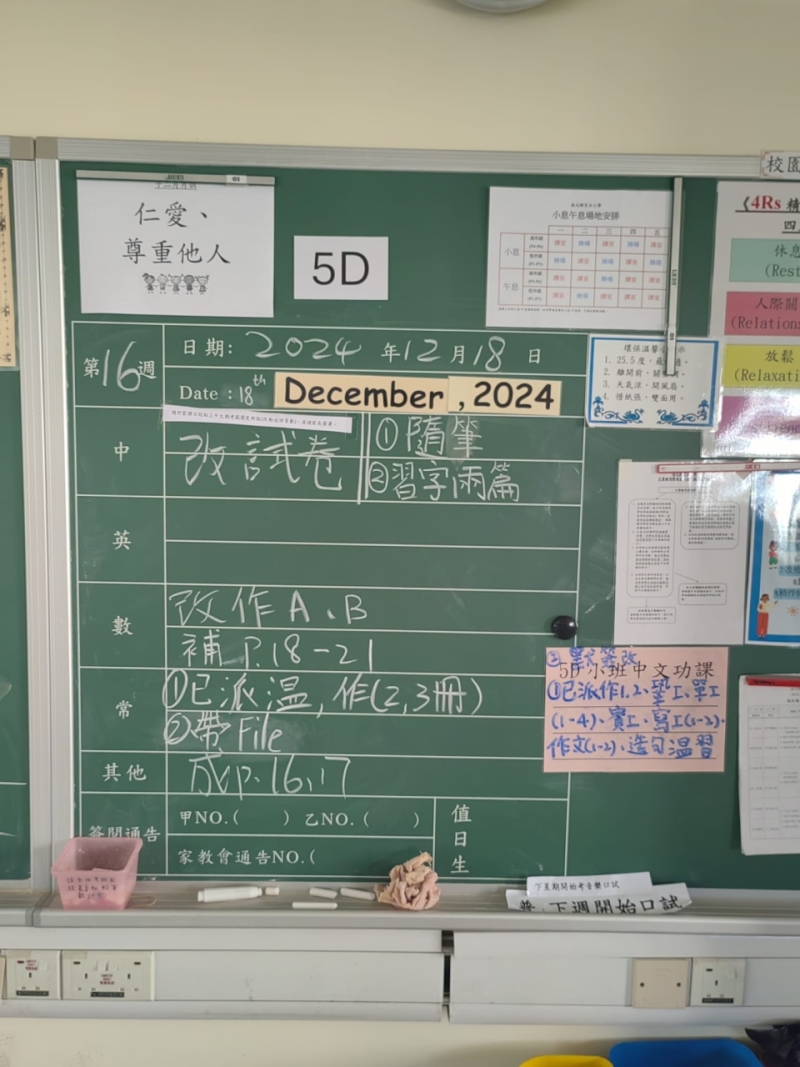 仁愛、
尊重他人
5D
小息午息場地安排
一 二 三 四 五
小息
午息
校園
《4Rs 精
四
休息
(Rest
人際關
(Relations
放鬆
(Relaxati
環保溫馨
1. 25.5度，
2. 離開前，關
3. 天氣涼，開風扇。
4. 惜紙張，雙面用。
第16週
日期：2024 年12月18日
Date：18th December ,2024
中
改試卷
①隨筆
②習字兩篇
英
數
改作A、B
補 P.18-21
常
①已派溫，作(2,3冊)
②帶File
其他
成P.16、17
簽閱通告
甲NO.( ) 乙NO.( )
家教會通告NO.(
值日生
5D小班中文功課
①已派作1,2、
(1-4)、實工、寫工(1-2)、
作文(1-2)、造句溫習
下星期開始考音樂口試
下週開始口試